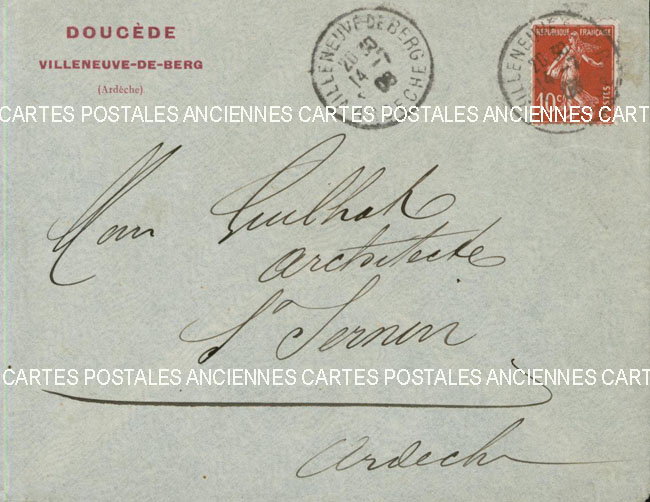 DOUCÈDE
VILLENEUVE-DE-BERG
(Ardèche)
VILLENEUVE-DE-BERG
20 30
14
08
ARDÈCHE
VILLENEUVE
20 30
RÉPUBLIQUE FRANÇAISE
10c
POSTES
CARTES POSTALES ANCIENNES CARTES POSTALES ANCIENNES CART
Mon Guilhot
architecte
St Sernin
CARTES POSTALES ANCIENNES CARTES POSTALES ANCIENNES CART
Ardèche